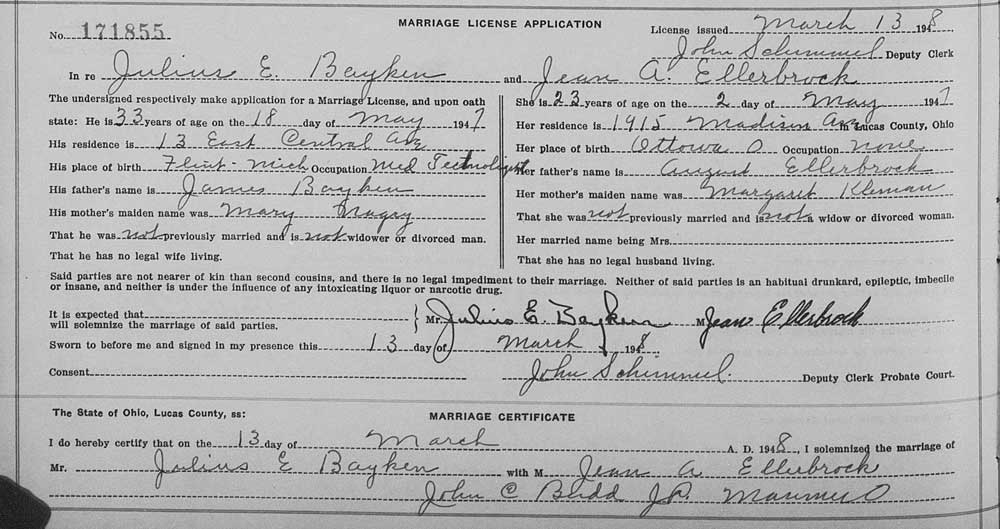 MARRIAGE LICENSE APPLICATION
No. 171855
License issued March 13 1948.
John Schimmel Deputy Clerk
In re Julius E. Bayken and Jean A. Ellerbrock
The undersigned respectively make application for a Marriage License, and upon oath
state: He is 33 years of age on the 18 day of May 1947
His residence is 13 East Central Ave
His place of birth Flint-Mich Occupation Med Technologist
His father's name is James Bayken
His mother's maiden name was Mary
That he was not previously married and is not widower or divorced man.
That he has no legal wife living.
She is 23 years of age on the 2 day of May 1947
Her residence is 1915 Madison Ave in Lucas County, Ohio
Her place of birth Ottowa O Occupation none
Her father's name is August Ellerbrock
Her mother's maiden name was Margaret Kleman
That she was not previously married and is not a widow or divorced woman.
Her married name being Mrs.
That she has no legal husband living.
Said parties are not nearer of kin than second cousins, and there is no legal impediment to their marriage. Neither of said parties is an habitual drunkard, epileptic, imbecile
or insane, and neither is under the influence of any intoxicating liquor or narcotic drug.
It is expected that
will solemnize the marriage of said parties.
Mr. Julius E. Bayken M Jean Ellerbrock
Sworn to before me and signed in my presence this 13 day of March 1948.
Consent John Schimmel. Deputy Clerk Probate Court.
The State of Ohio, Lucas County, ss:
MARRIAGE CERTIFICATE
I do hereby certify that on the 13 day of March A. D. 1948, I solemnized the marriage of
Mr. Julius E Bayken with M Jean A Ellerbrock
John C J.P. Maumee O